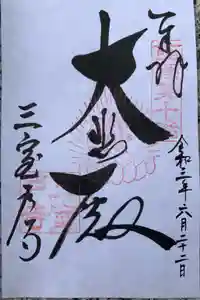 奉拝
令和三年六月二十二日
大悲殿
三室戸寺